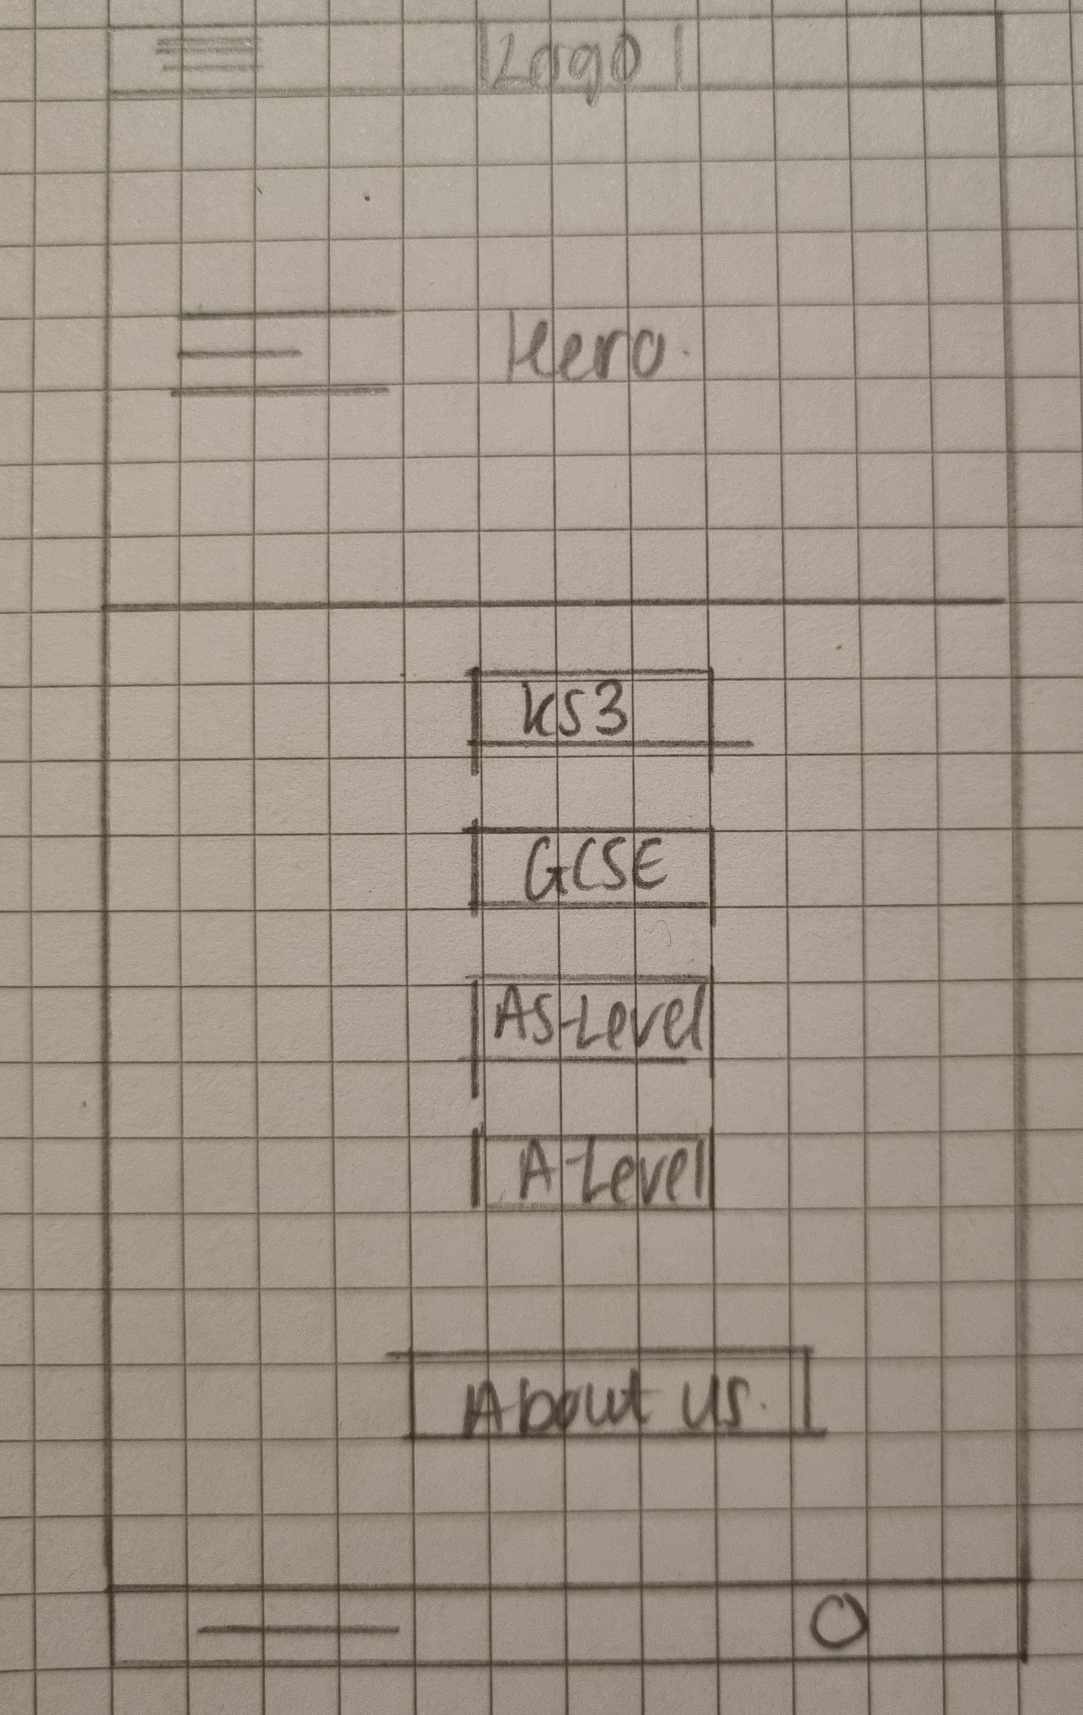 Logo
Hero.
KS3
GCSE
AS-Level
A-Level
About us.